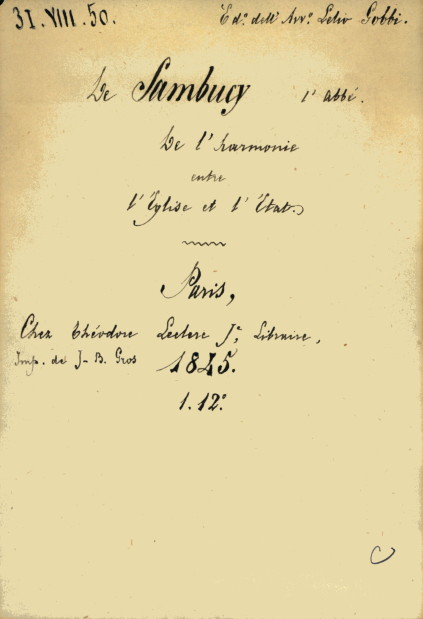 31.VIII.50. Ed. dell' Avv.º Lelio Gobbi.
De Sambucy l'abbé.
De l'harmonie
entre
l'Eglise et l'Etat.
Paris,
Chez Théodore Leclere Jᵉ, Libraire,
Imp. de J-B. Gros 1845.
1.12º
C